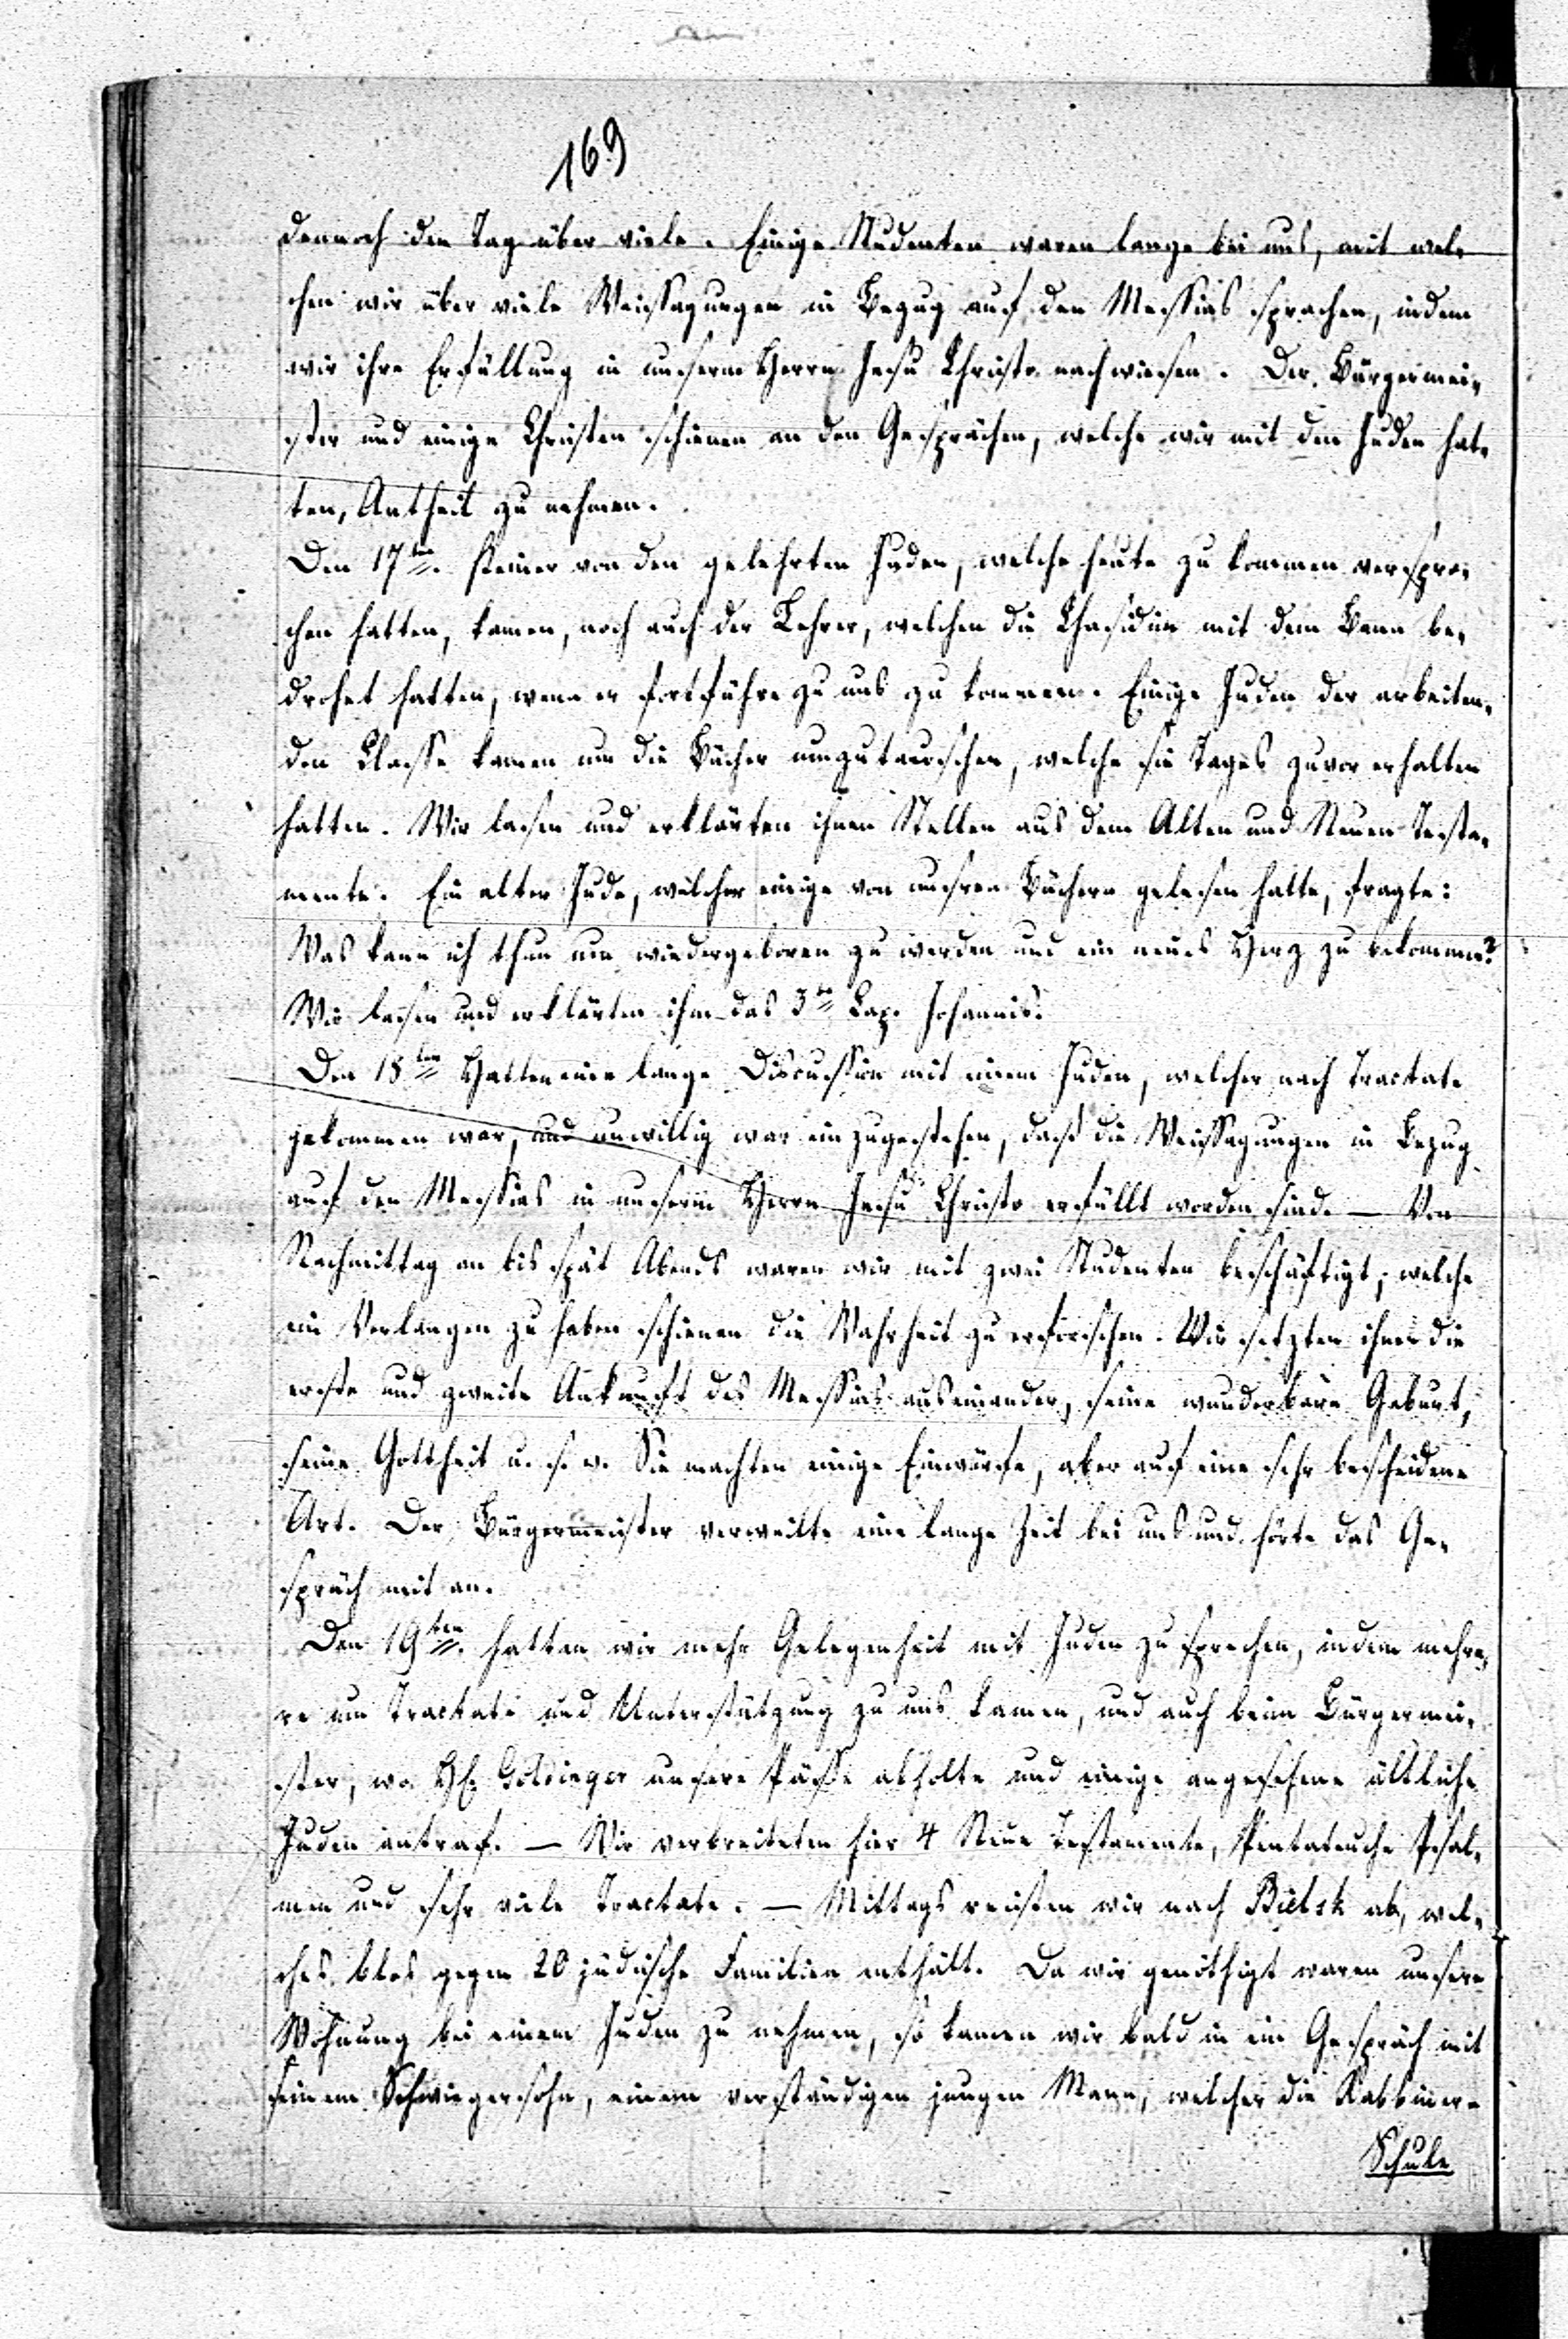 169
dennoch den Tag über viele. Einige Studenten waren lange bei uns, mit wel-
chen wir über viele Weissagungen in Bezug auf den Messias sprachen, indem
wir ihre Erfüllung in unserm Herrn Jesu Christo nachwiesen. Der Bürgermei-
ster und einige Christen schienen an den Gesprächen, welche wir mit den Juden hat-
ten, Antheil zu nehmen.
Den 17ten. Keiner von den gelehrten Juden, welche heute zu kommen verspro-
chen hatten, kamen, noch auch der Lehrer, welchen die Chasidim mit dem Bann be-
drohet hatten, wenn er fortführe zu uns zu kommen. Einige Juden der arbeiten-
den Classe kamen um die Bücher umzutauschen, welche sie Tages zuvor erhalten
hatten. Wir lasen und erklärten ihnen Stellen aus dem Alten und Neuen Testa-
mente. Ein alter Jude, welcher einige von unsren Büchern gelesen hatte, fragte:
Was kann ich thun um wiedergeboren zu werden und ein neues Herz zu bekommen?
Wir lasen und erklärten ihm das 3te Cap. Johannis.
Den 18ten Hatten eine lange Discussion mit einem Juden, welcher nach Tractate
gekommen war, und unwillig war einzugestehen, dass die Weissagungen in Bezug
auf den Messias in unserm Herrn Jesu Christo erfüllt worden sind. — Von
Nachmittag an bis spät Abends waren wir mit zwei Studenten beschäftigt, welche
ein Verlangen zu haben schienen die Wahrheit zu erforschen. Wir setzten ihnen die
erste und zweite Ankunft des Messias auseinander, seine wunderbare Geburt,
seine Gottheit u. s. w. Sie machten einige Einwürfe, aber auf eine sehr bescheidene
Art. Der Bürgermeister verweilte eine lange Zeit bei uns und hörte das Ge-
spräch mit an.
Den 19ten. hatten wir mehr Gelegenheit mit Juden zu sprechen, indem mehre-
re um Tractate und Unterstützung zu uns kamen, und auch beim Bürgermei-
ster, wo H. Goldinger unsere Pässe abholte und einige angesehene ältliche
Juden antraf. — Wir verbreiteten hier 4 Neue Testamente, Pentateuche Psal-
men und sehr viele Tractate. — Mittags reisten wir nach Bielsk ab, wel-
ches blos gegen 20 jüdische Familien enthält. Da wir genöthigt waren unsere
Wohnung bei einem Juden zu nehmen, so kamen wir bald in ein Gespräch mit
seinem Schwiegersohn, einem verständigen jungen Mann, welcher die Rabbiner-
Schule